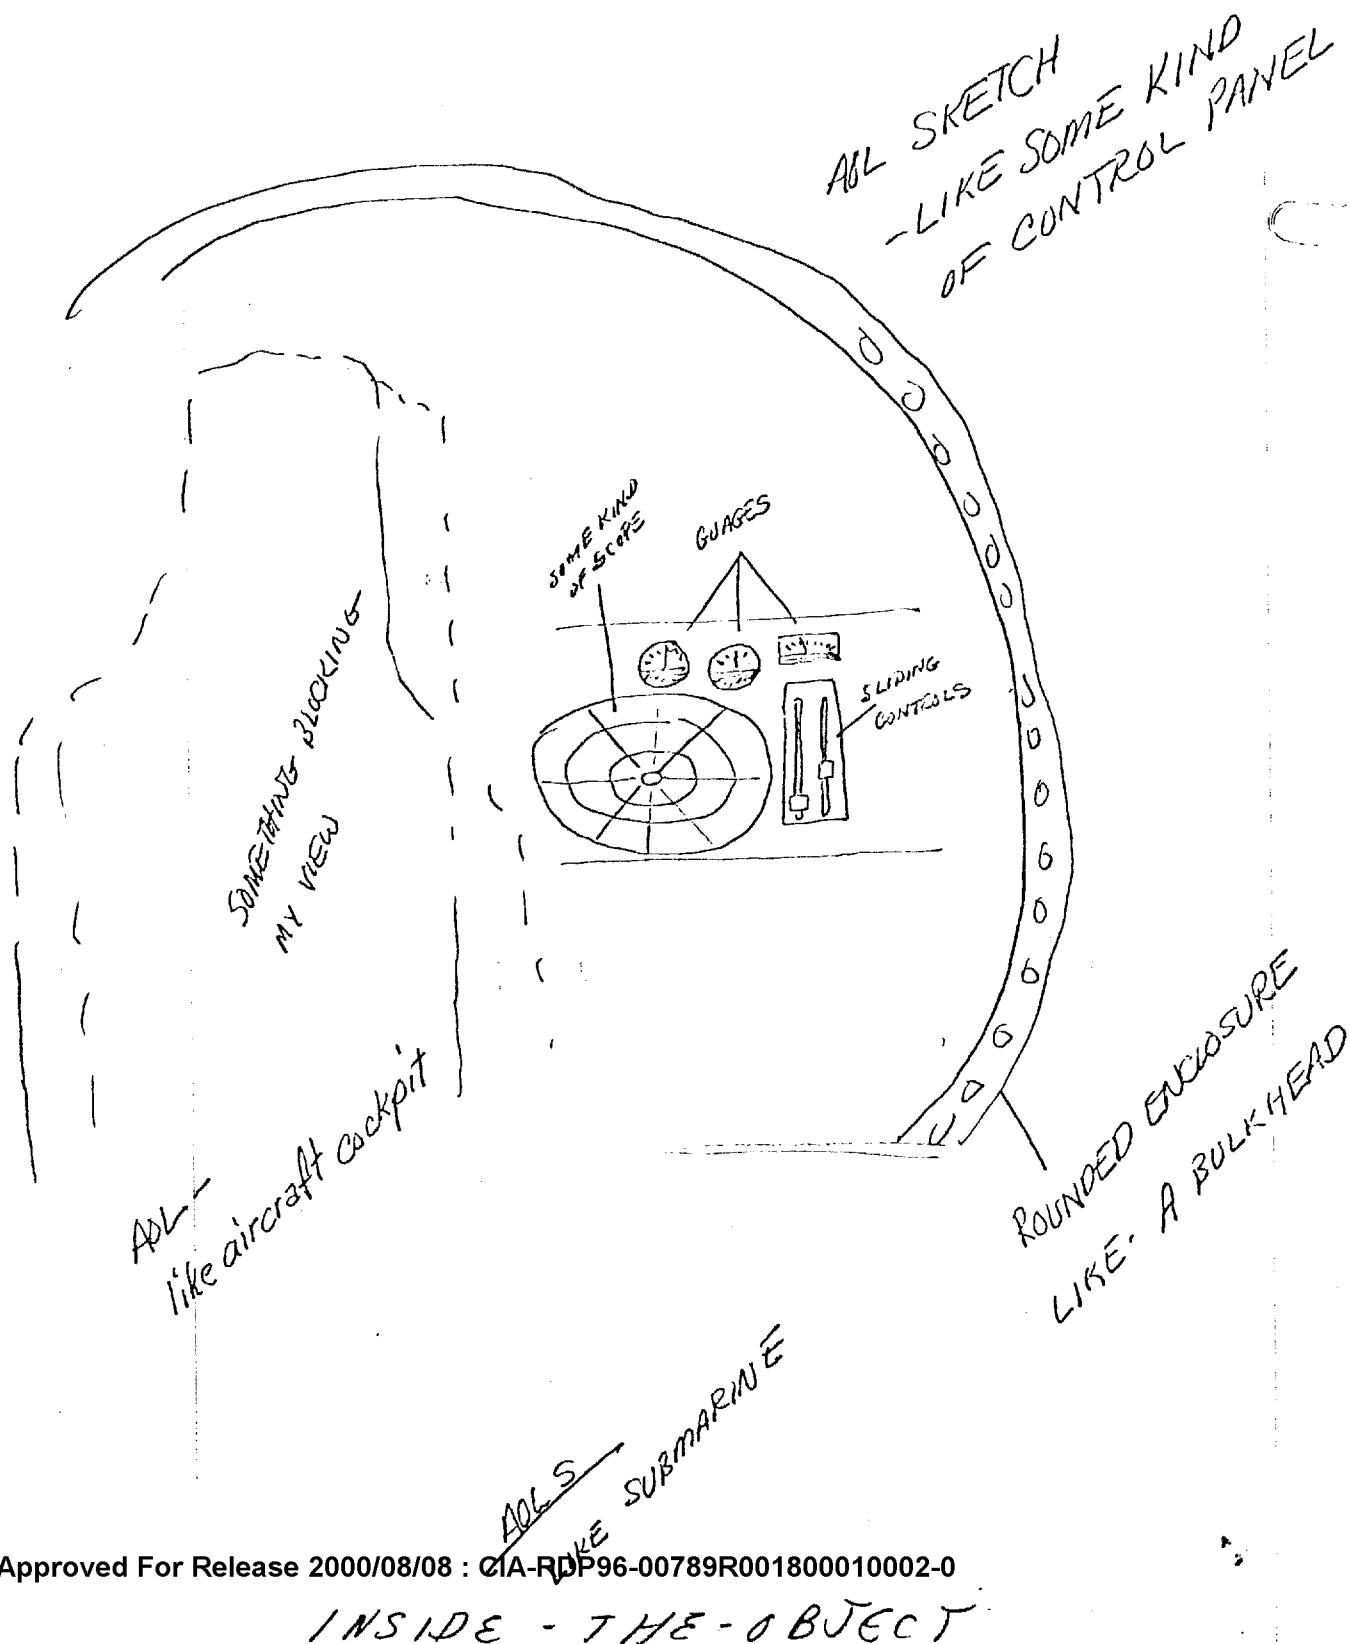 AOL SKETCH
- LIKE SOME KIND
OF CONTROL PANEL
SOME KIND
OF SCOPE
GUAGES
SLIDING
CONTROLS
SOMETHING BLOCKING
MY VIEW
AOL -
like aircraft cockpit
ROUNDED ENCLOSURE
LIKE A BULKHEAD
AOL S
LIKE SUBMARINE
Approved For Release 2000/08/08 : CIA-RDP96-00789R001800010002-0
INSIDE - THE - OBJECT